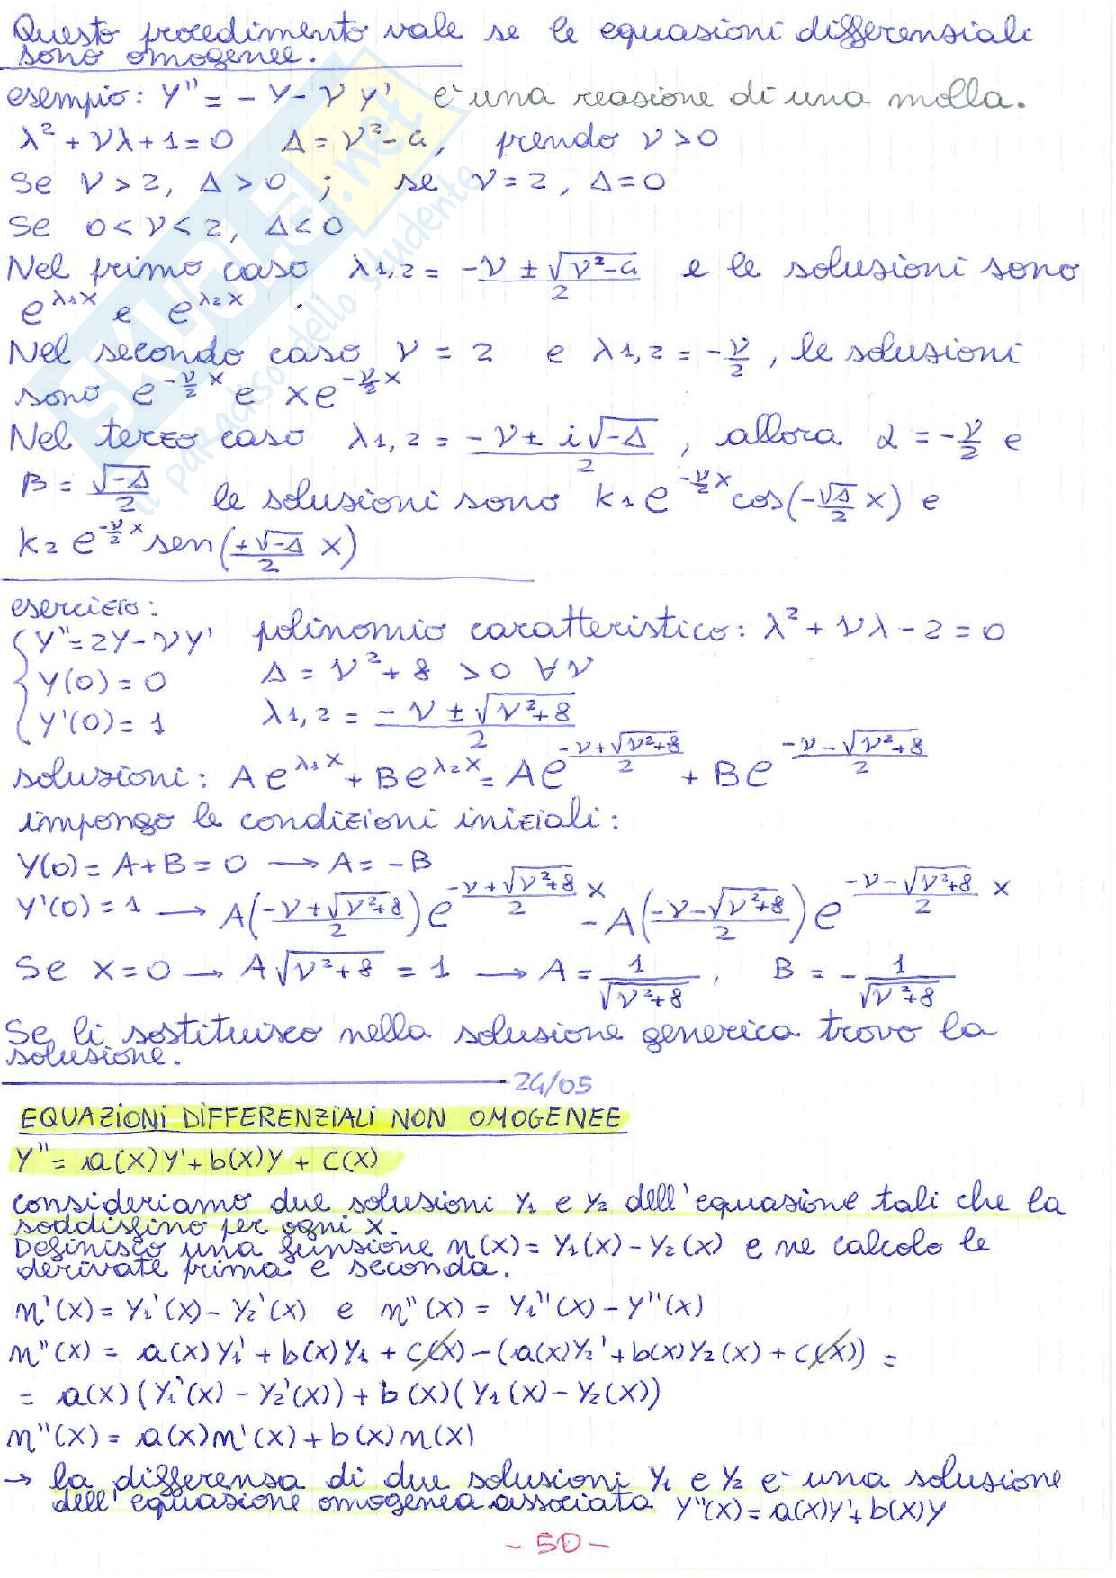 Questo procedimento vale se le equazioni differenziali
sono omogenee.
esempio: y'' = - y - ν y' è una reazione di una molla.
λ² + νλ + 1 = 0 Δ = ν² - 4, prendo ν > 0
Se ν > 2, Δ > 0 ; se ν = 2, Δ = 0
Se 0 < ν < 2, Δ < 0
Nel primo caso λ1,2 = (-ν ± √(ν²-4))/2 e le soluzioni sono
e^(λ1x) e e^(λ2x).
Nel secondo caso ν = 2 e λ1,2 = -ν/2, le soluzioni
sono e^(-ν/2 x) e xe^(-ν/2 x)
Nel terzo caso λ1,2 = (-ν ± i√-Δ)/2, allora α = -ν/2 e
β = √-Δ/2 le soluzioni sono k1 e^(-ν/2 x) cos(-√Δ/2 x) e
k2 e^(-ν/2 x) sen(+√-Δ/2 x)
esercizio:
{ y'' = 2y - νy' polinomio caratteristico: λ² + νλ - 2 = 0
y(0) = 0 Δ = ν² + 8 > 0 ∀ν
y'(0) = 1 λ1,2 = (-ν ± √(ν²+8))/2
soluzioni: Ae^(λ1x) + Be^(λ2x) = Ae^((-ν+√(ν²+8))/2) + Be^((-ν-√(ν²+8))/2)
impongo le condizioni iniziali:
y(0) = A + B = 0 → A = -B
y'(0) = 1 → A((-ν+√(ν²+8))/2)e^((-ν+√(ν²+8))/2 x) - A((-ν-√(ν²+8))/2)e^((-ν-√(ν²+8))/2 x)
Se x = 0 → A√(ν²+8) = 1 → A = 1/√(ν²+8), B = -1/√(ν²+8)
Se li sostituisco nella soluzione generica trovo la
soluzione.
24/05
EQUAZIONI DIFFERENZIALI NON OMOGENEE
y'' = a(x)y' + b(x)y + c(x)
consideriamo due soluzioni y1 e y2 dell'equazione tali che la
soddisfino per ogni x.
Definisco una funzione n(x) = y1(x) - y2(x) e ne calcolo le
derivate prima e seconda.
n'(x) = y1'(x) - y2'(x) e n''(x) = y1''(x) - y''(x)
n''(x) = a(x)y1' + b(x)y1 + c(x) - (a(x)y2' + b(x)y2(x) + c(x)) =
= a(x)(y1'(x) - y2'(x)) + b(x)(y1(x) - y2(x))
n''(x) = a(x)n'(x) + b(x)n(x)
→ la differenza di due soluzioni y1 e y2 è una soluzione
dell'equazione omogenea associata y''(x) = a(x)y' + b(x)y
- 50 -
SKUOLA.net
il paradiso dello studente